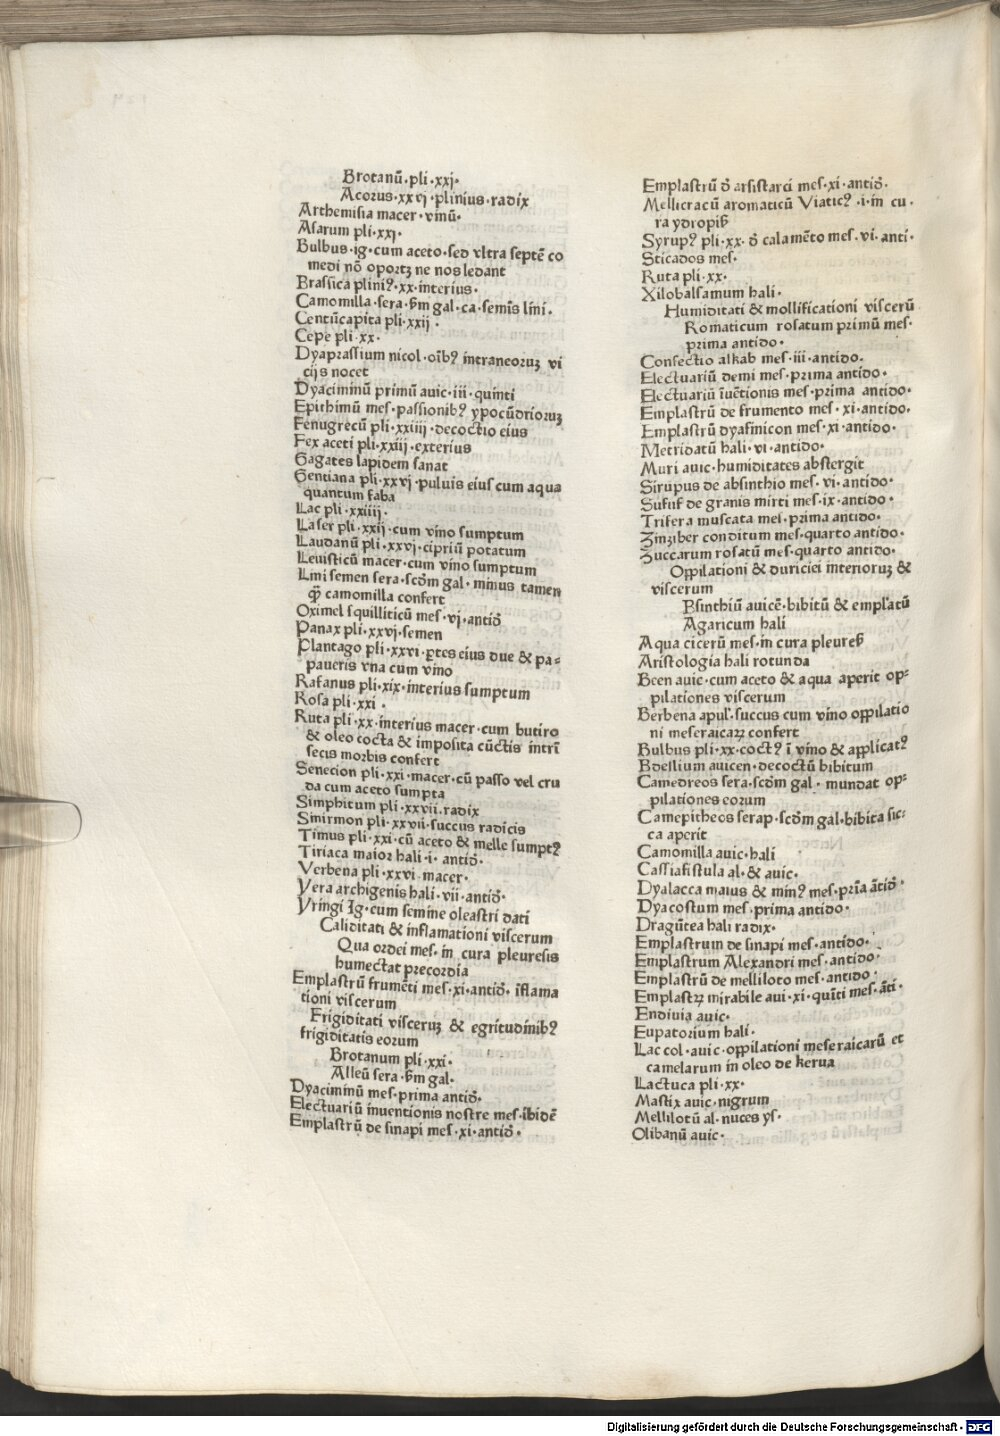 Brotanũ·pli·xxj·
Acorus·xxvj·plinius·radix
Arthemisia macer·vinũ·
Asarum pli·xxj·
Bulbus·ig·cum aceto·sed vltra septẽ co
medi nõ oportꝫ ne nos ledant
Brassica pliniꝰ·xx·interius·
Camomilla·sera·ẞm gal·ca·semĩs lini·
Centũcapita pli·xxij·
Cepe pli·xx·
Dyaprassium nicol·oĩbꝰ intraneoruꝫ vi
cijs nocet
Dyaciminũ primũ auic·iii·quinti
Epithimũ mes·passionibꝰ ypocũdrioruꝫ
Fenugrecũ pli·xxiiii·decoctio eius
Fex aceti pli·xxiij·exterius
Gagates lapidem sanat
Gentiana pli·xxvj·puluis eius cum aqua
quantum faba
Lac pli·xxiiij·
Laser pli·xxij·cum vino sumptum
Laudanũ pli·xxvj·cipriũ potatum
Leuisticũ macer·cum vino sumptum
Lini semen sera·scõm gal·minus tamen
ꝙ camomilla confert
Oximel squilliticũ mes·vj·antiđ
Panax pli·xxvj·semen
Plantago pli·xxvi·ꝑtes eius due & pa⸗
paueris vna cum vino
Rafanus pli·xix·interius sumptum
Rosa pli·xxi·
Ruta pli·xx·interius macer·cum butiro
& oleo cocta & imposita cũctis intrĩ
secis morbis confert
Senecion pli·xxi·macer·cũ passo vel cru
da cum aceto sumpta
Simphitum pli·xxvii·radix
Smirmon pli·xxvii·succus radicis
Timus pli·xxi·cũ aceto & melle sumptꝰ
Tiriaca maior hali·i·antiđ·
Verbena pli·xxvi·macer·
Yera archigenis hali·vii·antiđ·
Yringi Ig·cum semine oleastri dati
Caliditati & inflamationi viscerum
Qua ordei mes·in cura pleuresis
humectat precordia
Emplastrũ frumẽti mes·xi·antiđ·ĩflama
tioni viscerum
Frigiditati visceruꝫ & egritudinibꝰ
frigiditatis eorum
Brotanum pli·xxi·
Alleũ sera·ẞm gal·
Dyaciminũ mes·prima antiđ·
Electuariũ inuentionis nostre mes·ibidẽ
Emplastrũ de sinapi mes·xi·antiđ·
Emplastrũ đ arsistarci mes·xi·antiđ·
Mellicracũ aromaticũ Viaticꝰ·i·in cu·
ra ydropiẞ
Syrupꝰ pli·xx·đ calamẽto mes·vi·anti·
Sticados mes·
Ruta pli·xx·
Xilobalsamum hali·
Humiditati & mollificationi viscerũ
Romaticum rosatum primũ mes·
prima antido·
Consectio alkab mes·iii·antido·
Electuariũ demi mes·prima antido·
Electuariũ ĩuẽtionis mes·prima antido·
Emplastrũ de frumento mes·xi·antido·
Emplastrũ dyafinicon mes·xi·antido·
Metridatũ hali·vi·antido·
Muri auic·humiditates abstergit
Sirupus de absinthio mes·vi·antido·
Sufuf de granis mirti mes·ix·antido·
Trifera muscata mes·prima antido·
Zinziber conditum mes·quarto antido·
Zuccarum rosatũ mes·quarto antido·
Oppilationi & duriciei interioruꝫ &
viscerum
Bsinthiũ auicẽ·bibitũ & emplatũ
Agaricum hali
Aqua cicerũ mes·in cura pleureẞ
Aristologia hali rotunda
Been auic·cum aceto & aqua aperit op⸗
pilationes viscerum
Berbena apul·succus cum vino oppilatio
ni meseraicaꝝ confert
Bulbus pli·xx·coctꝰ ĩ vino & applicatꝰ
Bdellium auicen·decoctũ bibitum
Camedreos sera·scõm gal·mundat op⸗
pilationes eorum
Camepitheos serap·scõm gal·bibita sic⸗
ca aperit
Camomilla auic·hali
Cassiafistula al·& auic·
Dyalacca maius & minꝰ mes·prĩa ãtiđ·
Dyacostum mes·prima antido·
Dragũtea hali radix·
Emplastrum de sinapi mes·antido·
Emplastrum Alexandri mes·antido·
Emplastrũ de melliloto mes·antido·
Emplastꝝ mirabile aui·xi·quĩti mes·ãti·
Endiuia auic·
Eupatorium hali·
Lac col·auic·oppilationi meseraicarũ et
camelarum in oleo de kerua
Lactuca pli·xx·
Mastix auic·nigrum
Mellilotũ al·nuces ys·
Olibanũ auic·
Digitalisierung gefördert durch die Deutsche Forschungsgemeinschaft - DFG